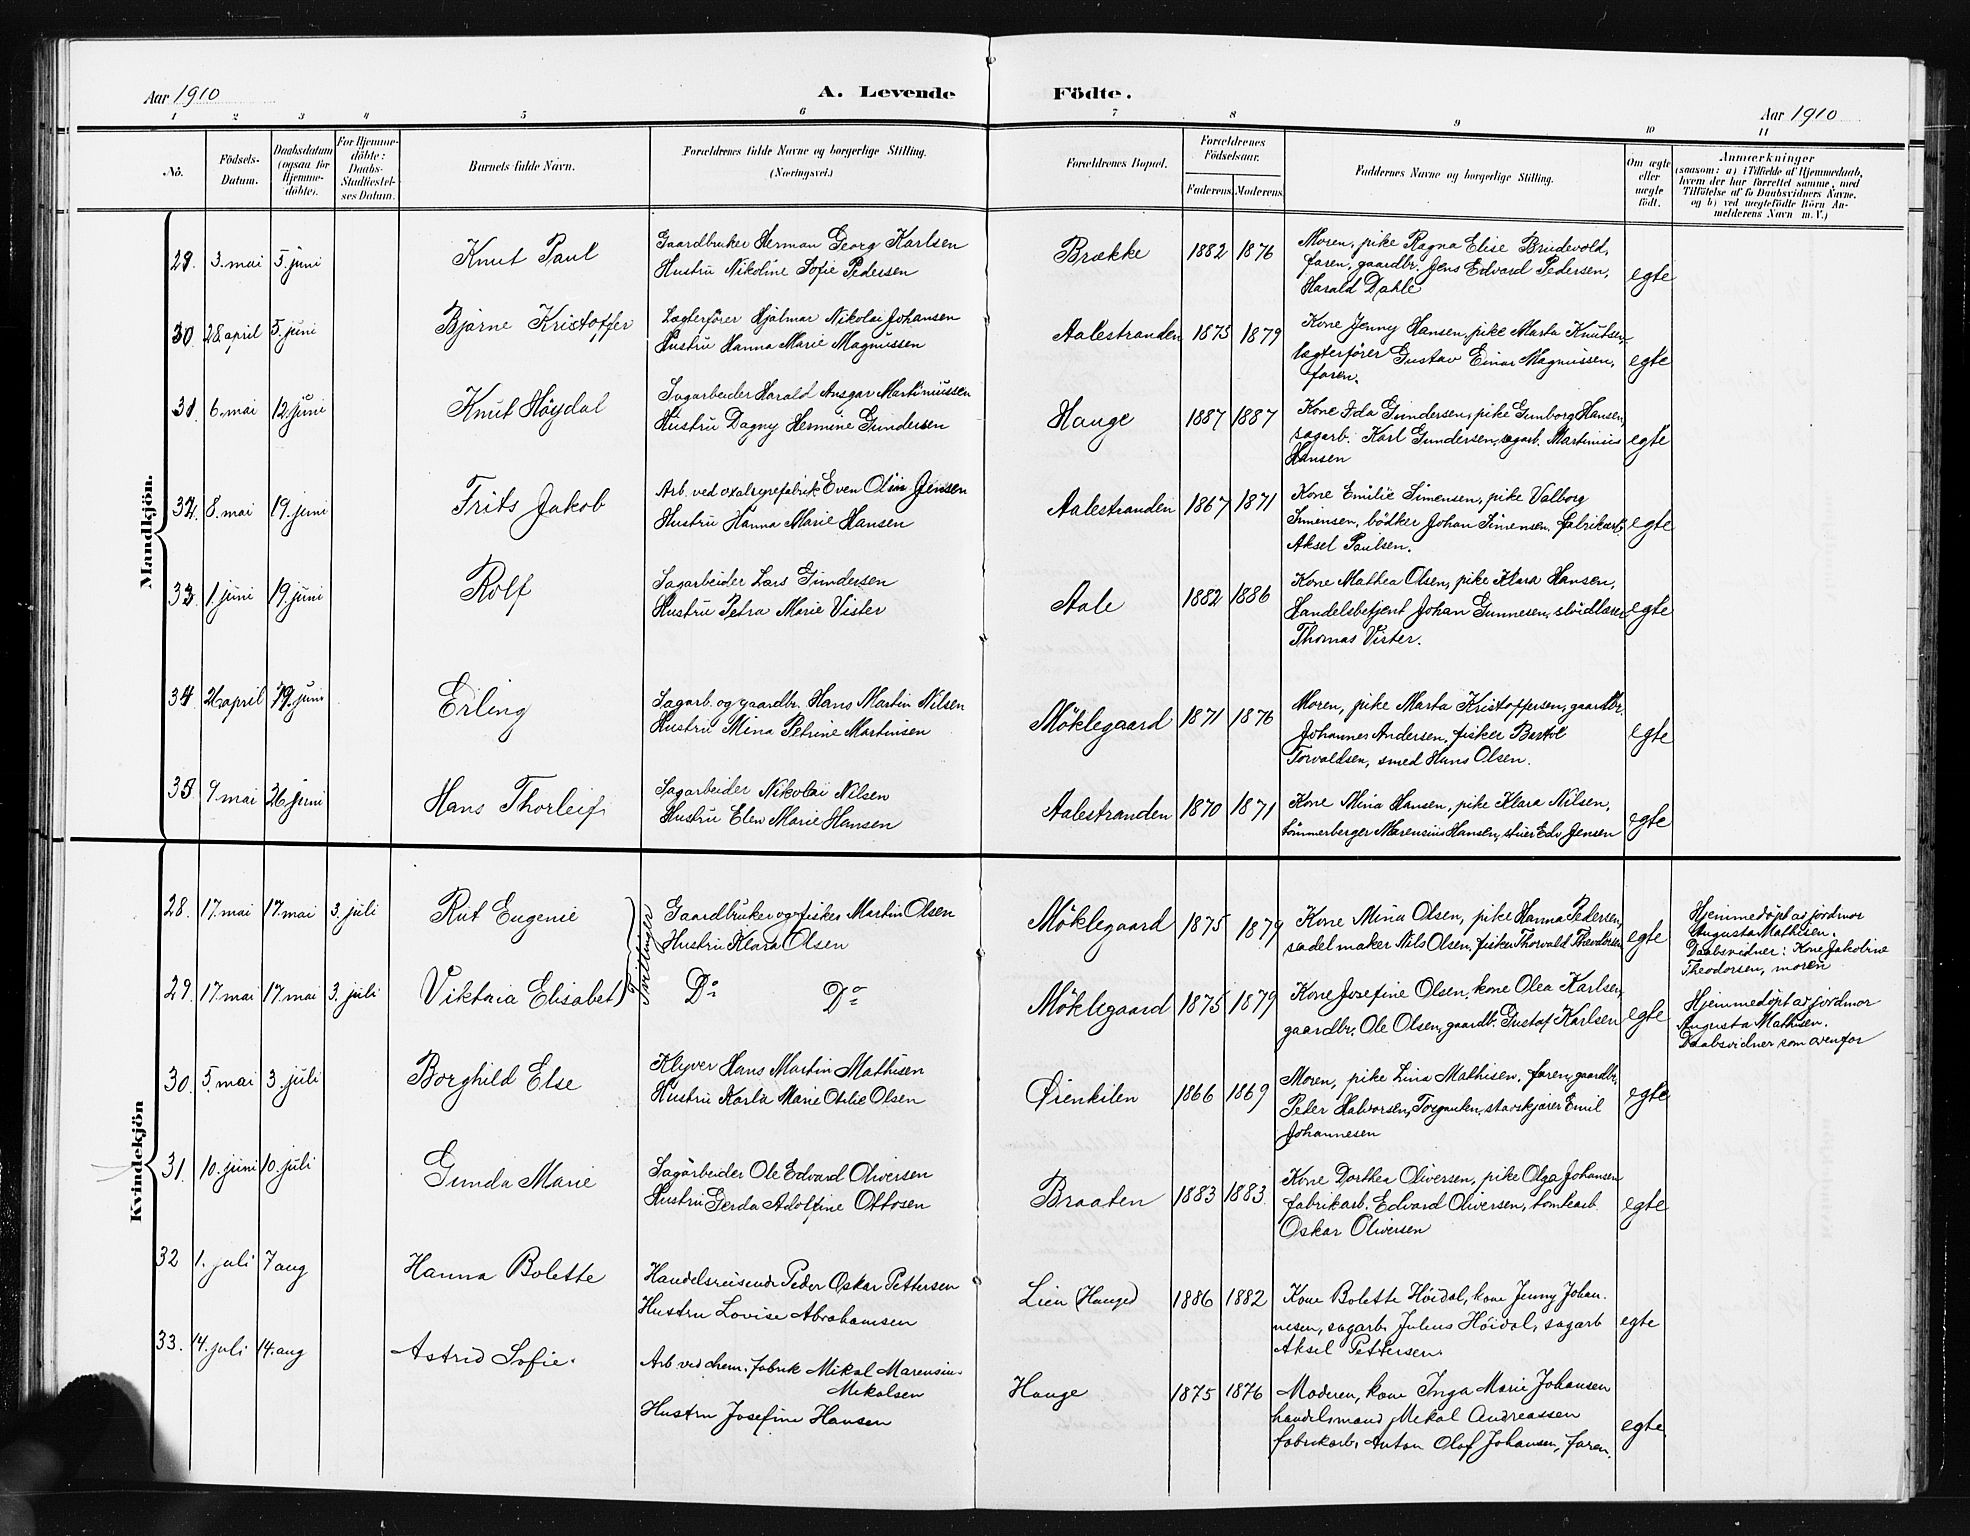 Aar 1910
A. Levende Födte.
Aar 1910
1 2 3 4 5 6 7 8 9 10 11
No.
Födsels-
Datum.
Daabsdatum
(ogsaa for
Hjemme-
döbte).
For Hjemme-
döbte:
Daabs-
Stadfæstel-
ses Datum.
Barnets fulde Navn.
Forældrenes fulde Navne og borgerlige Stilling.
(Næringsvei.)
Forældrenes Bopæl.
Forældrenes
Födselsaar.
Faderens Moderens
Faddernes Navne og borgerlige Stilling.
Om ægte
eller
uægte
födt.
Anmærkninger
(saasom: a) i Tilfælde af Hjemmedaab,
hvem der har forrettet samme, med
Tilföielse af to Daabsvidners Navne.
og b) ved uegtefödte Börn An-
melderens Navn m. V.)
Mandkjön.
29. 3. mai 5. juni Knut Paul
Gaardbruker Herman Georg Karlsen
Hustru Nikoline Sofie Pedersen
Brække 1882 1876
Moren, pike Ragna Elise Brudevold,
faren, gaardbr. Jens Edvard Pedersen,
Harald Dahle
egte
30. 28. april 5. juni Bjarne Kristoffer
Lægterfører Hjalmar Nikolai Johansen
Hustru Hanna Marie Magnussen
Aalestranden 1875 1879
Kone Jenny Hansen, pike Marta Knutsen,
lægterfører Gustav Einar Magnussen,
faren.
egte
31 6. mai 12. juni Knut Høydal
Sagarbeider Harald Ansgar Martinussen
Hustru Dagny Hermine Gundersen
Hauge 1887 1887
Kone Ida Gundersen, pike Gunborg Hansen,
sagarb. Karl Gundersen, sagarb. Martinius
Hansen
egte
32. 8. mai 19. juni Frits Jakob
Arb. ved oxalsyrefabrik Even Olsen Jensen
Hustru Hanna Marie Hansen
Aalestranden 1867 1871
Kone Emilie Simensen, pike Valborg
Simensen, bødker Johan Simensen, fabrikarb.
Aksel Paulsen.
egte
33. 1. juni 19. juni Rolf
Sagarbeider Lars Gundersen
Hustru Petra Marie Vister
Aale 1882 1886
Kone Mathea Olsen, pike Klara Hansen,
Handelsbetjent Johan Gunnesen, sløidlærer
Thomas Vister.
egte
34 26 april 19. juni Erling
Sagarb. og gaardbr. Hans Martin Nilsen
Hustru Mina Petrine Martinsen
Møklegaard 1871 1876
Moren, pike Marta Kristoffersen, gaardbr.
Johannes Andersen, fisker Bertol
Torvaldsen, smed Hans Olsen.
egte
35 9 mai 26 juni Hans Thorleif
Sagarbeider Nikolai Nilsen
Hustru Elen Marie Hansen
Aalestranden 1870 1871
Kone Mina Hansen, pike Klara Nilsen,
tømmerberger Marensius Hansen, stuer Edv Jensen
egte
Kvindekjön
28. 17. mai 17. mai 3. juli Rut Eugenie
Tvillinger
Gaardbruker og fisker Martin Olsen
Hustru Klara Olsen
Møklegaard 1875 1879
Kone Mina Olsen, pike Hanna Pedersen,
sadelmaker Nils Olsen, fisker Thorvald Theodorsen
egte
Hjemmedøpt av jordmor
Augusta Mathisen.
Daabsvidner: Kone Jakobine
Theodorsen, moren
29. 17. mai 17. mai 3. juli Viktoria Elisabet
Do Do
Møklegaard 1875 1879
Kone Josefine Olsen, kone Olea Karlsen,
gaardbr. Ole Olsen, gaardb. Gustaf Karlsen
egte
Hjemmedøpt av jordmor
Augusta Mathisen.
Daabsvidner som ovenfor
30. 5. mai 3. juli Borghild Else
Klyver Hans Martin Mathisen
Hustru Karla Marie Otilie Olsen
Ørenkilen 1866 1869
Moren, pike Lina Mathisen, faren, gaardbr.
Peter Halvorsen, Torgauten, stavskjærer Emil
Johannesen
egte
31. 10. juni 10. juli Gunda Marie
Sagarbeider Ole Edvard Oliversen
Hustru Gerda Adolfine Ottosen
Braaten 1883 1883
Kone Dorthea Oliversen, pike Olga Johansen
fabrikarb. Edvard Oliversen, tomtearb.
Oskar Oliversen
egte
32 1. juli 7 aug Hanna Bolette
Handelsreisende Peder Oskar Pettersen
Hustru Lovise Abrahamsen
Lien (Hauge) 1886 1882
Kone Bolette Høidal, kone Jenny Johan-
nesen, sagarb. Julius Høidal, sagarb
Aksel Pettersen.
egte
33. 14. juli 14. aug Astrid Sofie.
Arb ved chem. fabrik Mikal Marensius
Mikalsen
Hustru Josefine Hansen
Hauge 1875 1876
Moderen, kone Inga Marie Johansen
handelsmand Mikal Andreassen
fabrikarb. Anton Olaf Johansen, faren,
egte